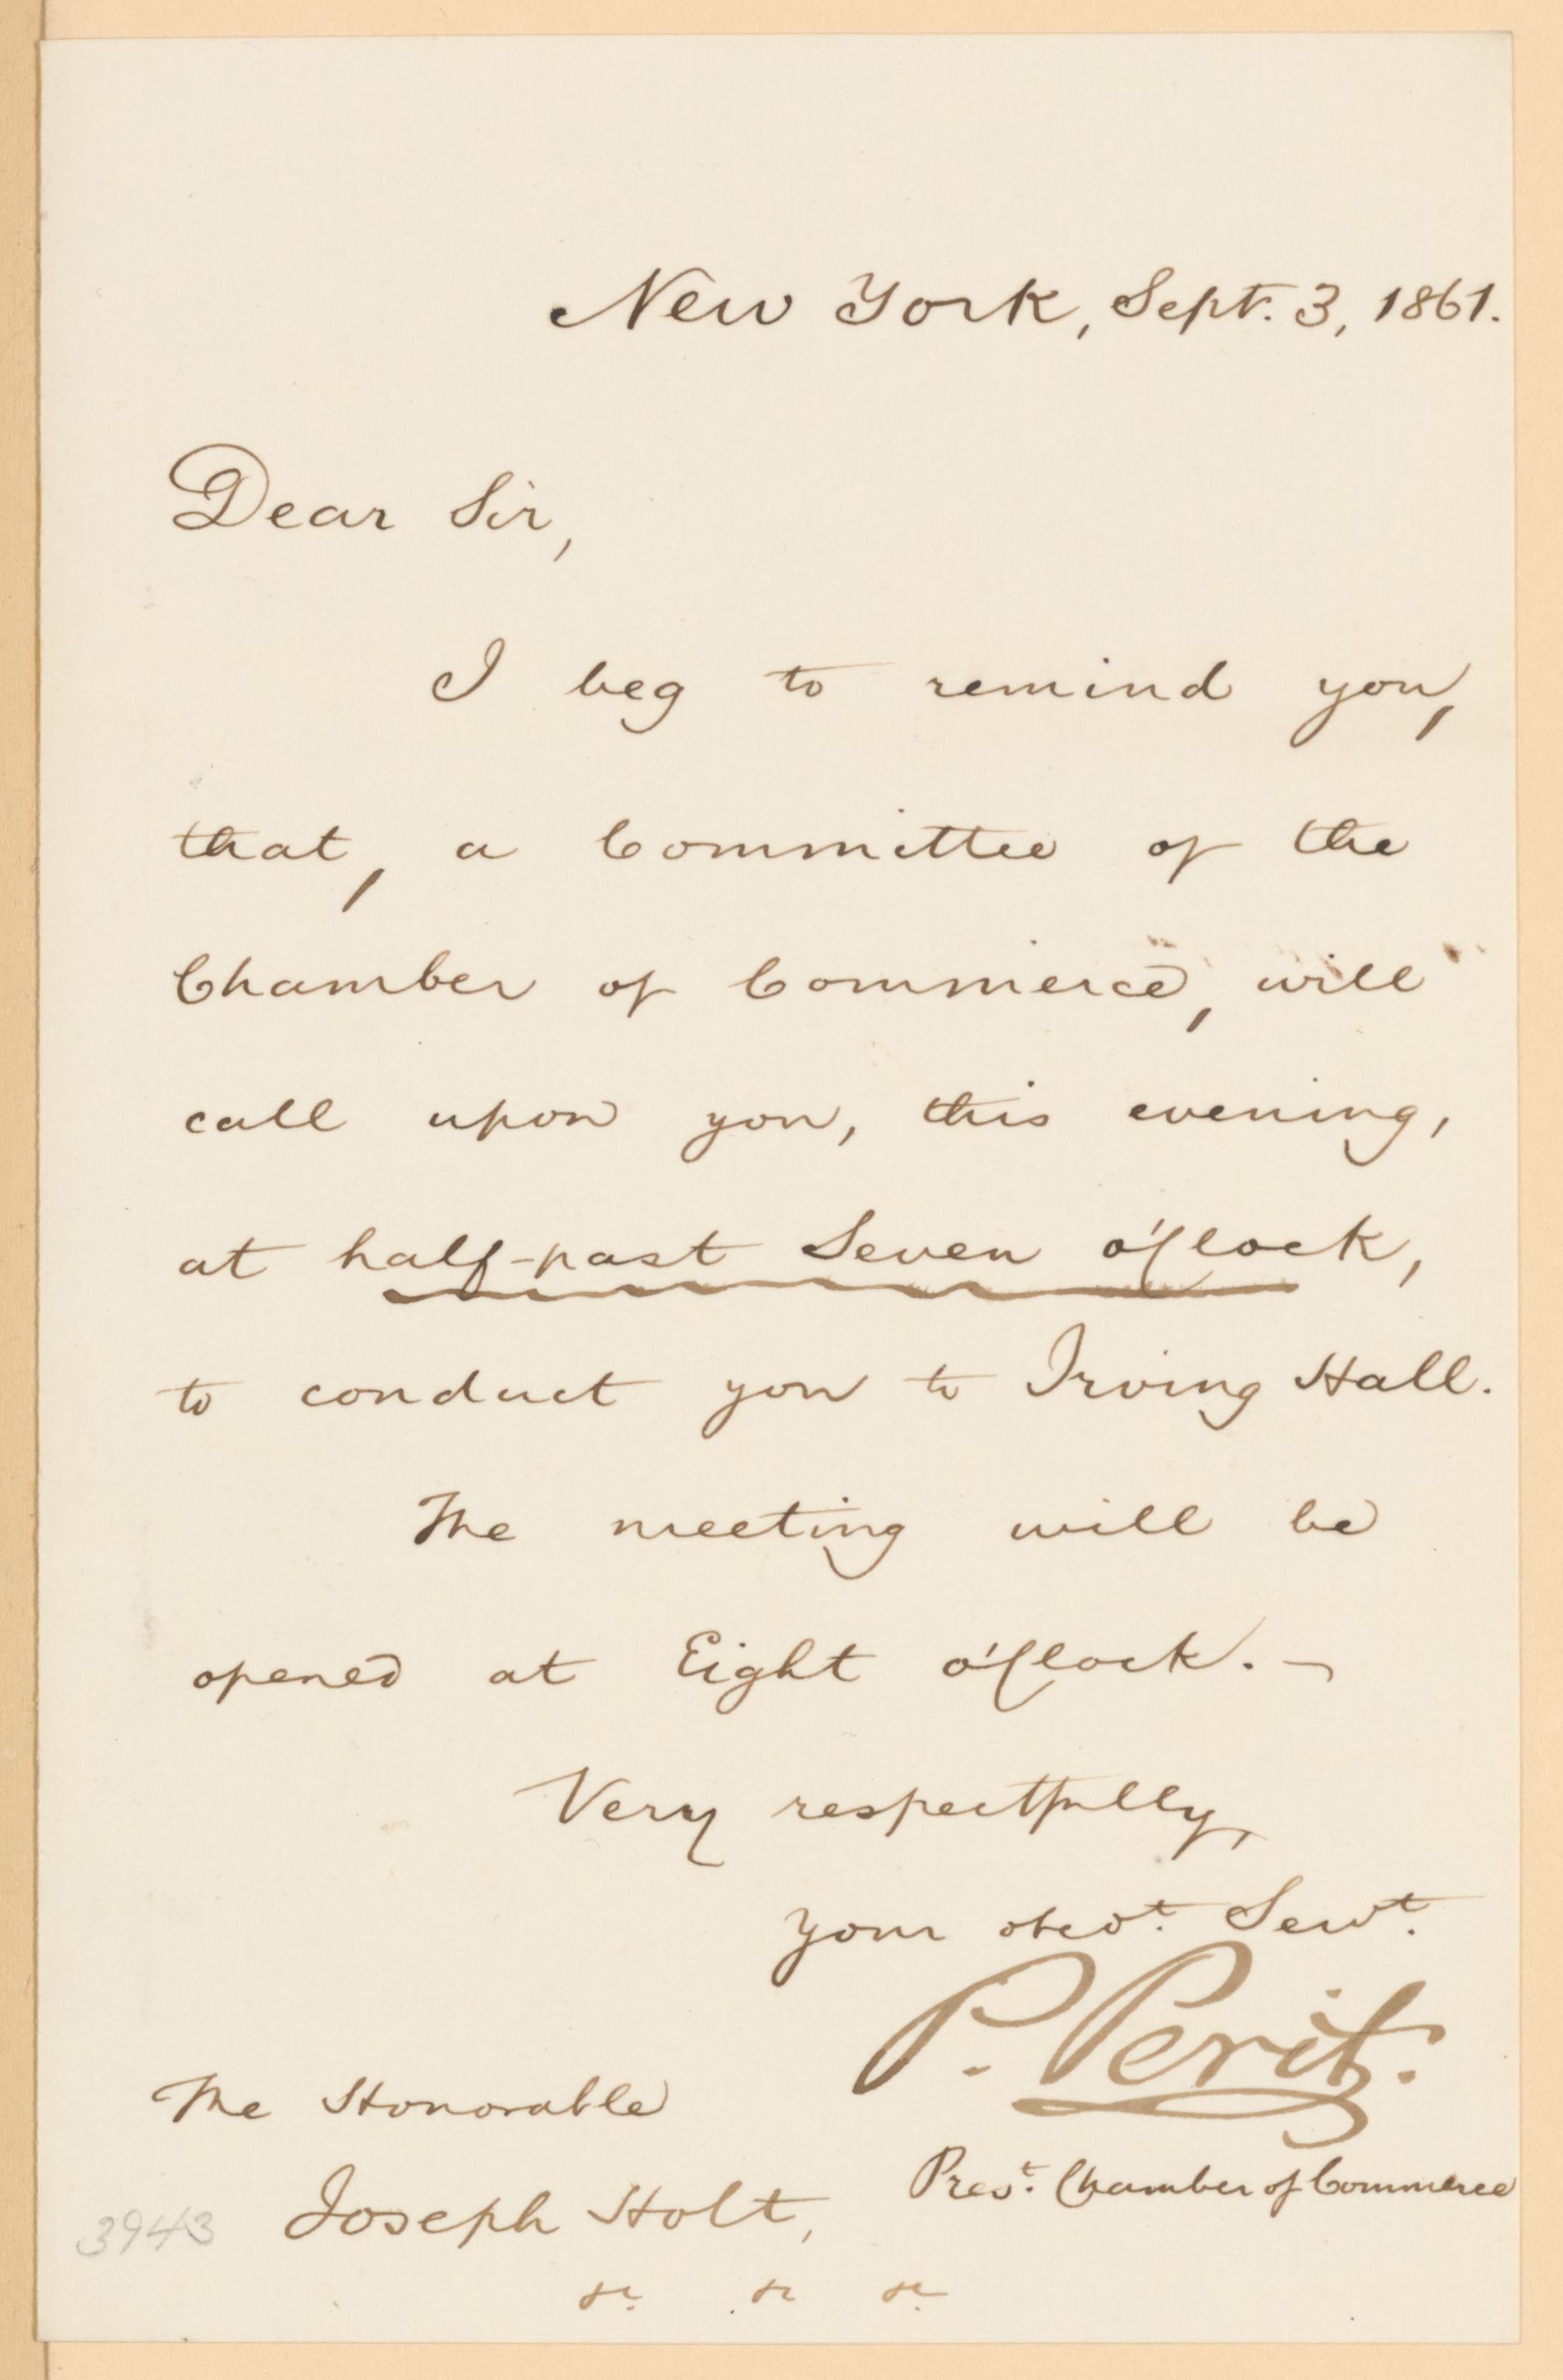 New York, Sept. 3, 1861.
Dear Sir,
I beg to remind you,
that, a Committee of the
Chamber of Commerce, will
call upon you, this evening,
at half-past Seven o'Clock,
to conduct you to Irving Hall.
The meeting will be
opened at Eight o'Clock. —
Very respectfully,
Your obedt. Servt.
P. Perit.
Prest. Chamber of Commerce
The Honorable
Joseph Holt,
&c. &c &c.
3943